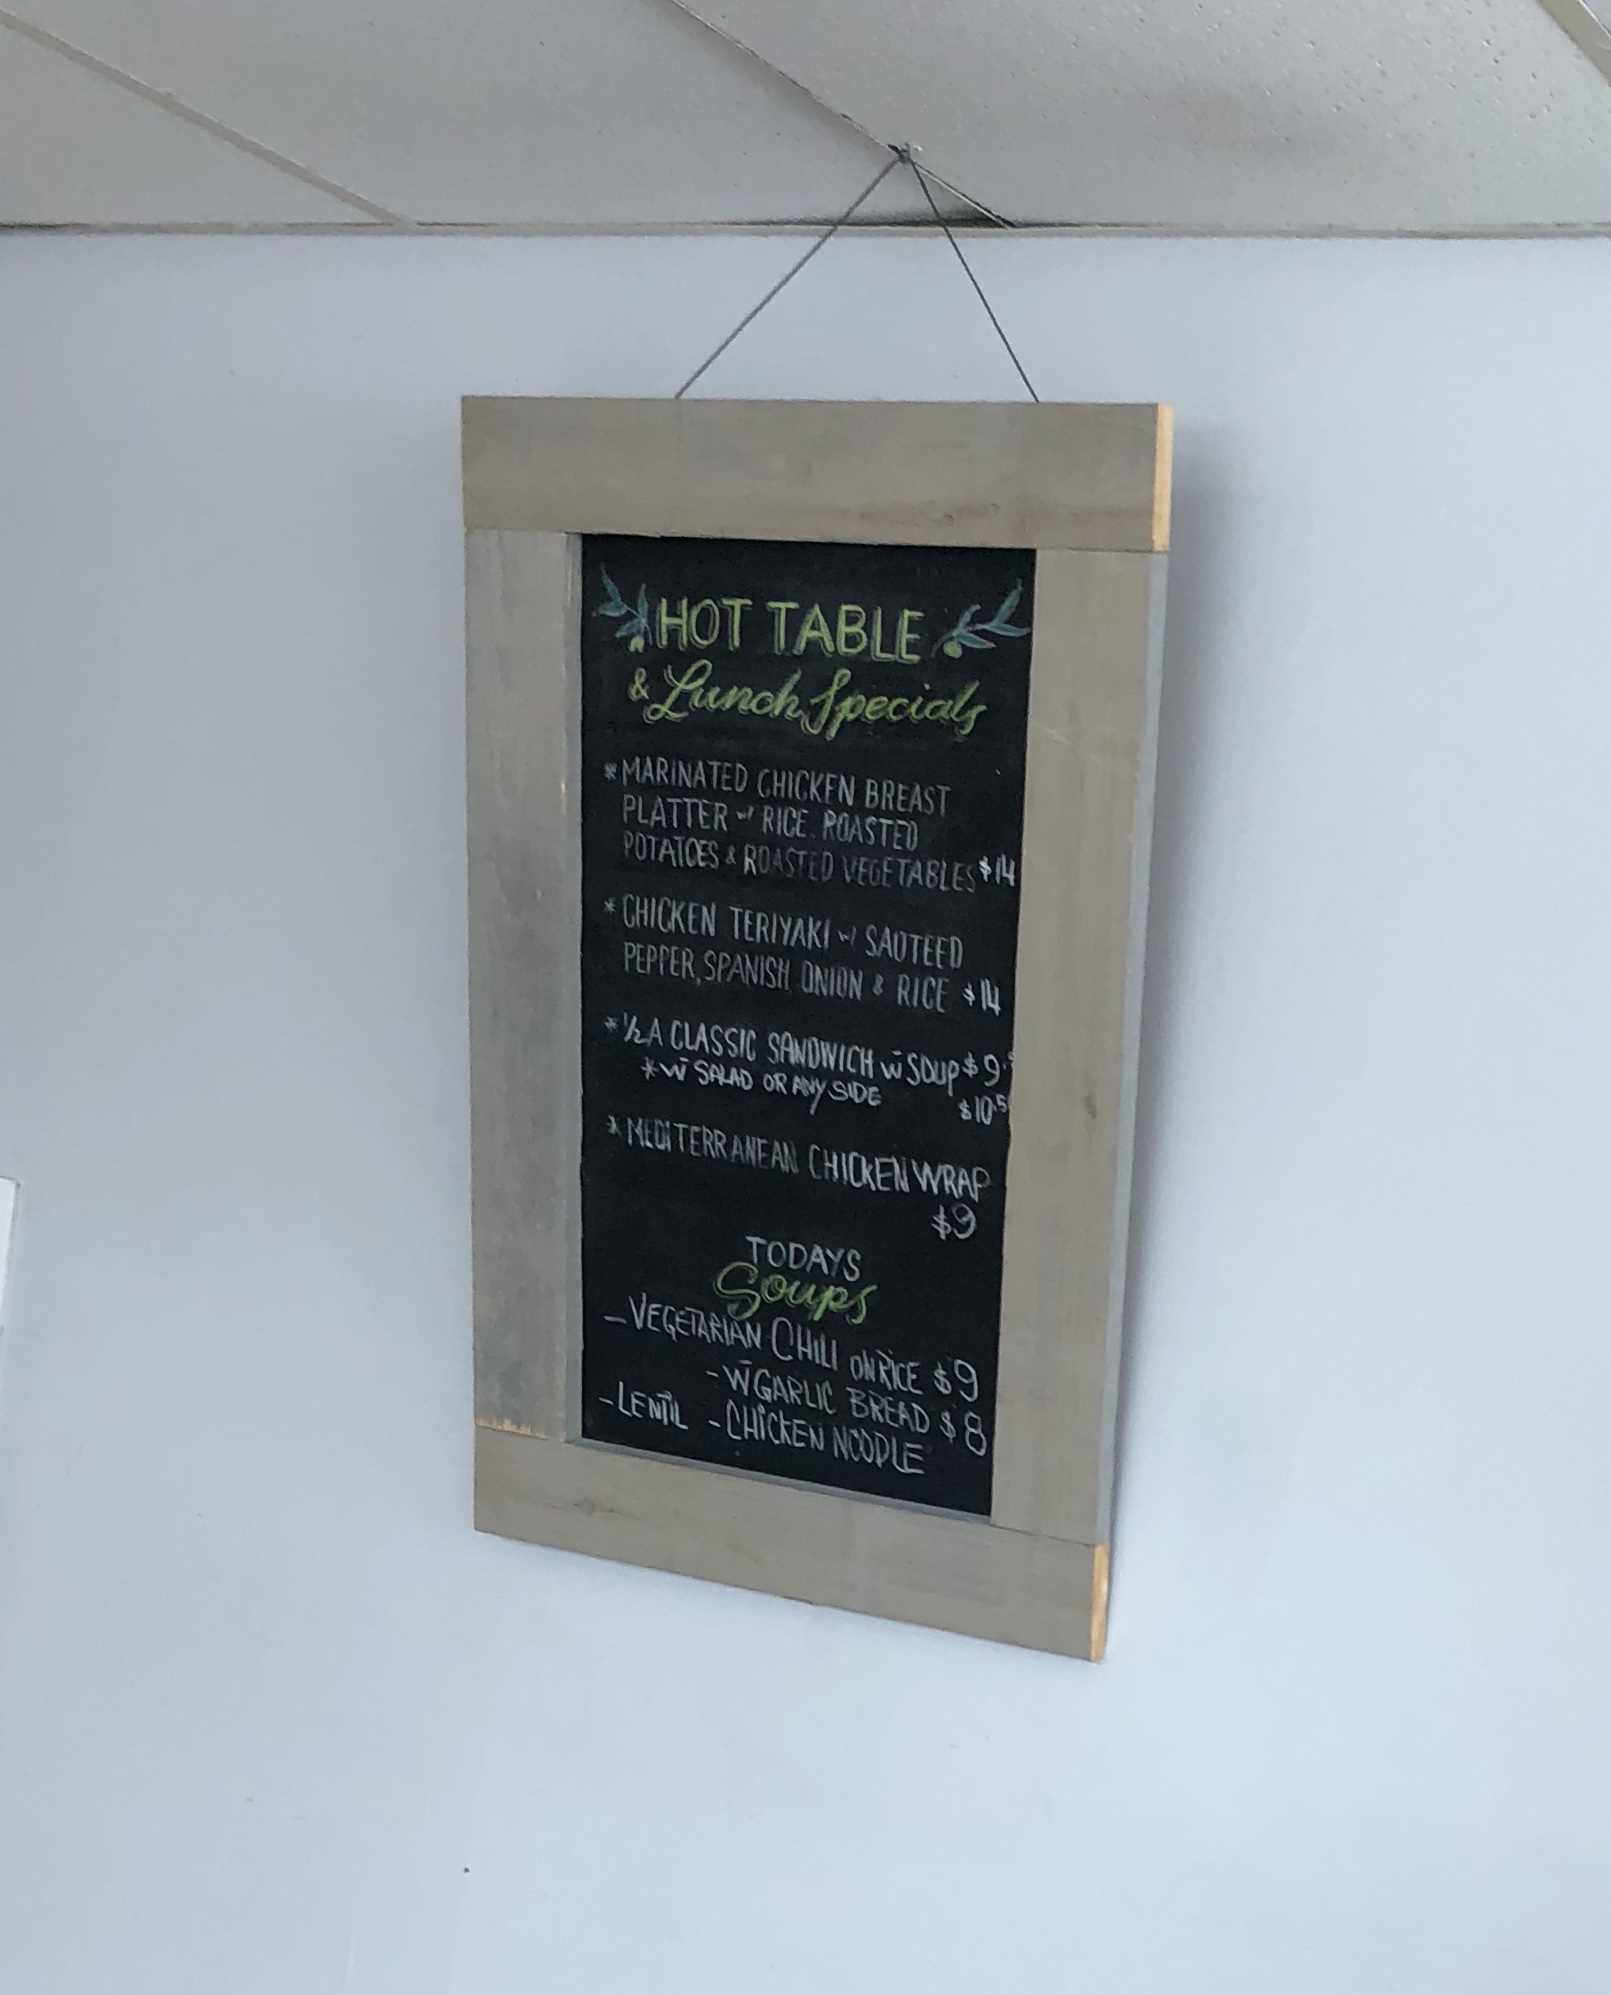 HOT TABLE
& Lunch Specials
* MARINATED CHICKEN BREAST
PLATTER w/ RICE, ROASTED
POTATOES & ROASTED VEGETABLES $14
* CHICKEN TERIYAKI w/ SAUTEED
PEPPER, SPANISH ONION & RICE $14
* ½ A CLASSIC SANDWICH w̄ SOUP $9.
* w̄ SALAD OR ANY SIDE $10.5
* MEDITERRANEAN CHICKEN WRAP
$9
TODAYS
Soups
- VEGETARIAN CHILI ON RICE $9
- W̄ GARLIC BREAD $8
- LENTIL - CHICKEN NOODLE